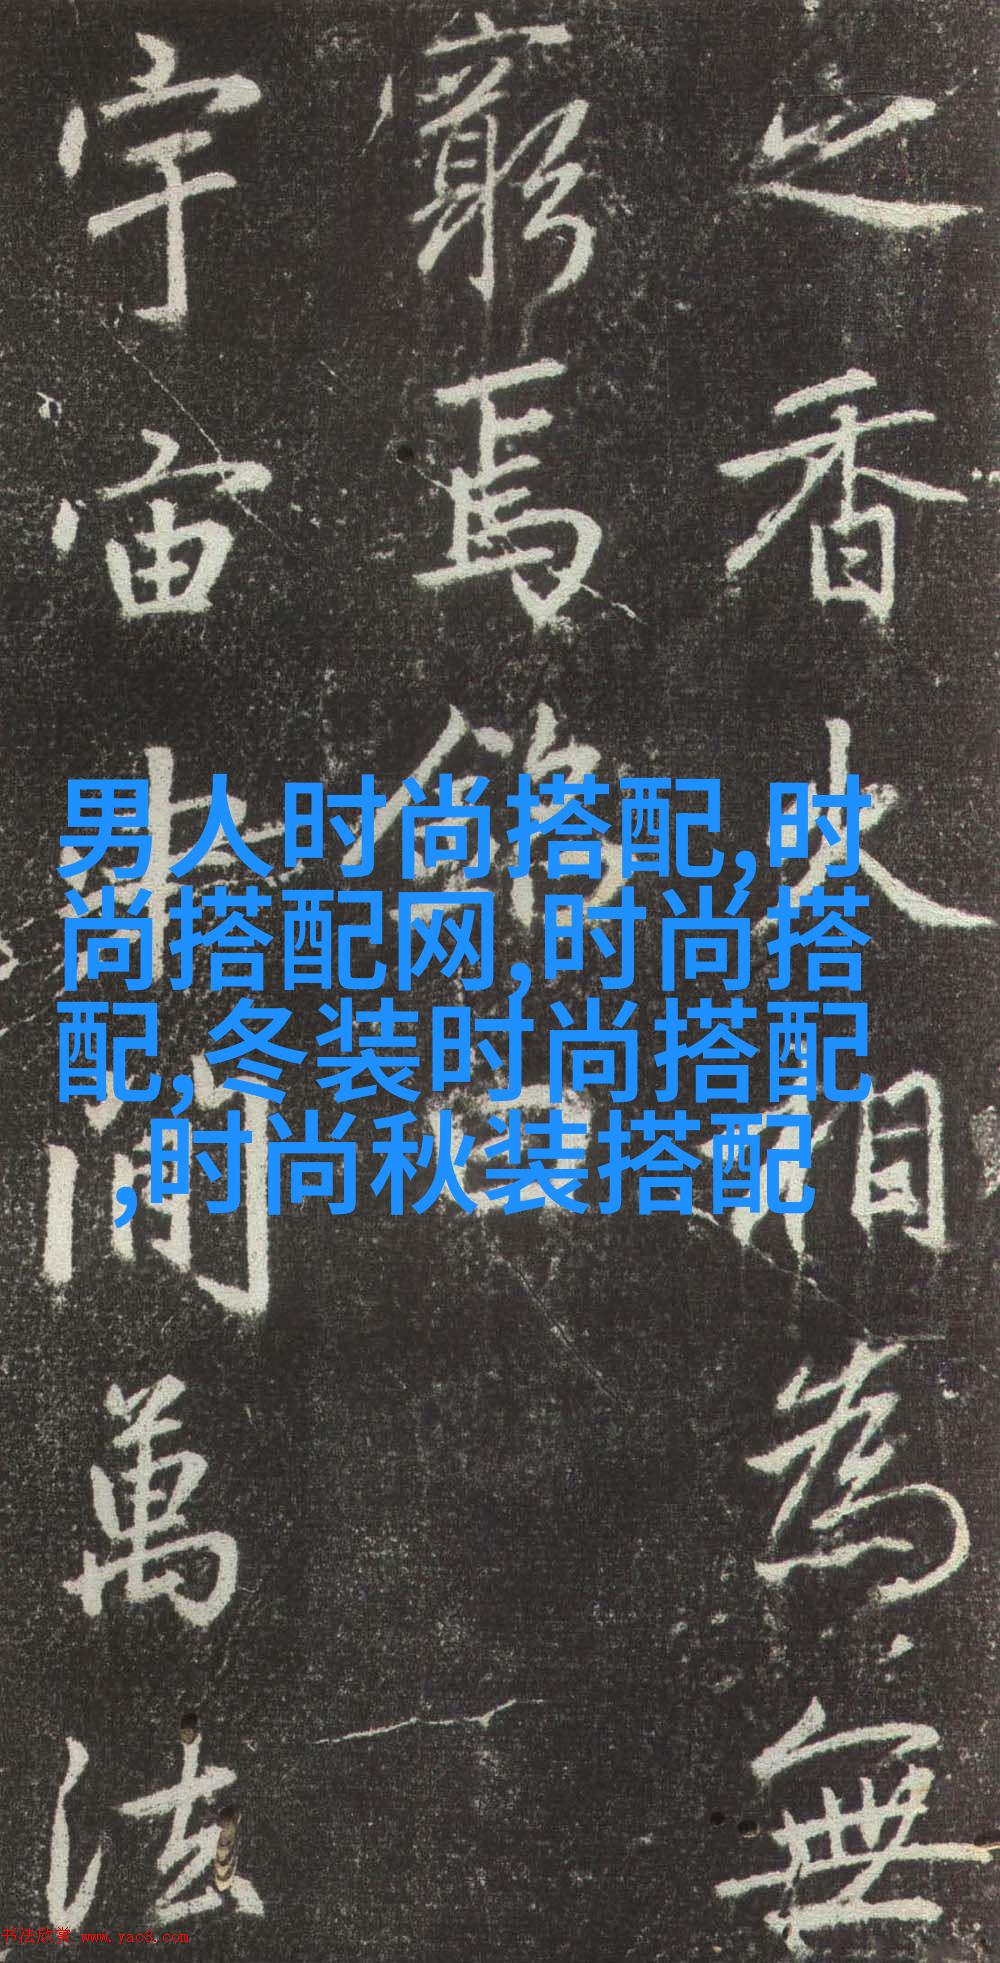 之香火相為無
窮焉紹
宇宙中間萬法
男人时尚搭配,时
尚搭配网,时尚搭
配,冬装时尚搭配
,时尚秋装搭配
书法欣赏 www.yac8.com